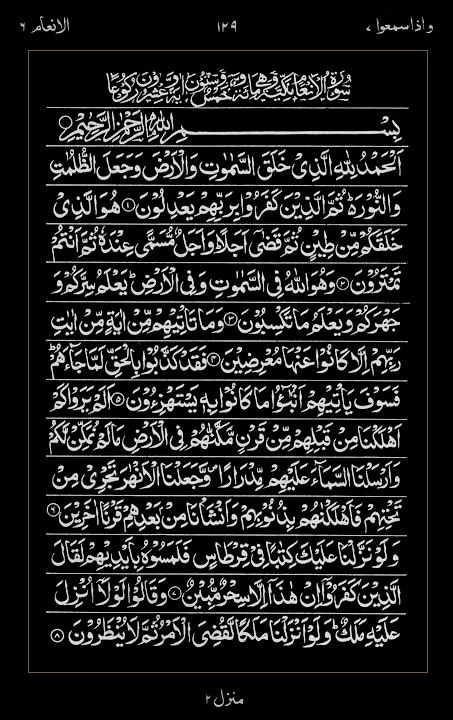 واذاسمعوا ٧ ١٢٩ الانعام ٦
سُوْرَةُ الْاَنْعَامِ مَكِّيَّةٌ وَّهِيَ مِائَةٌ وَّخَمْسٌ وَّسِتُّوْنَ اٰيَةً وَّعِشْرُوْنَ رُكُوْعًا
بِسْمِ اللّٰهِ الرَّحْمٰنِ الرَّحِيْمِ
اَلْحَمْدُ لِلّٰهِ الَّذِيْ خَلَقَ السَّمٰوٰتِ وَالْاَرْضَ وَجَعَلَ الظُّلُمٰتِ
وَالنُّوْرَ ؕ ثُمَّ الَّذِيْنَ كَفَرُوْا بِرَبِّهِمْ يَعْدِلُوْنَ ۝١ هُوَ الَّذِيْ
خَلَقَكُمْ مِّنْ طِيْنٍ ثُمَّ قَضٰۤى اَجَلًا ؕ وَاَجَلٌ مُّسَمًّى عِنْدَهٗ ثُمَّ اَنْتُمْ
تَمْتَرُوْنَ ۝٢ وَهُوَ اللّٰهُ فِي السَّمٰوٰتِ وَفِي الْاَرْضِ ؕ يَعْلَمُ سِرَّكُمْ وَ
جَهْرَكُمْ وَيَعْلَمُ مَا تَكْسِبُوْنَ ۝٣ وَمَا تَاْتِيْهِمْ مِّنْ اٰيَةٍ مِّنْ اٰيٰتِ
رَبِّهِمْ اِلَّا كَانُوْا عَنْهَا مُعْرِضِيْنَ ۝٤ فَقَدْ كَذَّبُوْا بِالْحَقِّ لَمَّا جَآءَهُمْ ؕ
فَسَوْفَ يَاْتِيْهِمْ اَنْۢبٰٓؤُا مَا كَانُوْا بِهٖ يَسْتَهْزِءُوْنَ ۝٥ اَلَمْ يَرَوْا كَمْ
اَهْلَكْنَا مِنْ قَبْلِهِمْ مِّنْ قَرْنٍ مَّكَّنّٰهُمْ فِي الْاَرْضِ مَا لَمْ نُمَكِّنْ لَّكُمْ
وَاَرْسَلْنَا السَّمَآءَ عَلَيْهِمْ مِّدْرَارًا ۪ وَّجَعَلْنَا الْاَنْهٰرَ تَجْرِيْ مِنْ
تَحْتِهِمْ فَاَهْلَكْنٰهُمْ بِذُنُوْبِهِمْ وَاَنْشَاْنَا مِنْۢ بَعْدِهِمْ قَرْنًا اٰخَرِيْنَ ۝٦
وَلَوْ نَزَّلْنَا عَلَيْكَ كِتٰبًا فِيْ قِرْطَاسٍ فَلَمَسُوْهُ بِاَيْدِيْهِمْ لَقَالَ
الَّذِيْنَ كَفَرُوْۤا اِنْ هٰذَآ اِلَّا سِحْرٌ مُّبِيْنٌ ۝٧ وَقَالُوْا لَوْلَاۤ اُنْزِلَ
عَلَيْهِ مَلَكٌ ؕ وَلَوْ اَنْزَلْنَا مَلَكًا لَّقُضِيَ الْاَمْرُ ثُمَّ لَا يُنْظَرُوْنَ ۝٨
منزل ٢